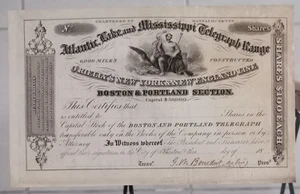 No.
Shares
Atlantic, Lake and Mississippi Telegraph Range
O'REILLY'S NEW YORK & NEW ENGLAND LINE
BOSTON & PORTLAND SECTION.
Capital
This Certifies that
is entitled to Shares in the
Capital Stock of the BOSTON AND PORTLAND TELEGRAPH
transferable only on the Books of the Company in person or by
Attorney In Witness whereof the President and Treasurer have
day of 18
Treasr. Prest.
SHARES $100 EACH